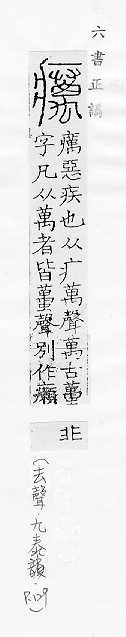 六書正譌
癘惡疾也从疒萬聲萬古蠆
字凡从萬者皆蠆聲別作癩
非
(去聲.九泰韻.P.09)